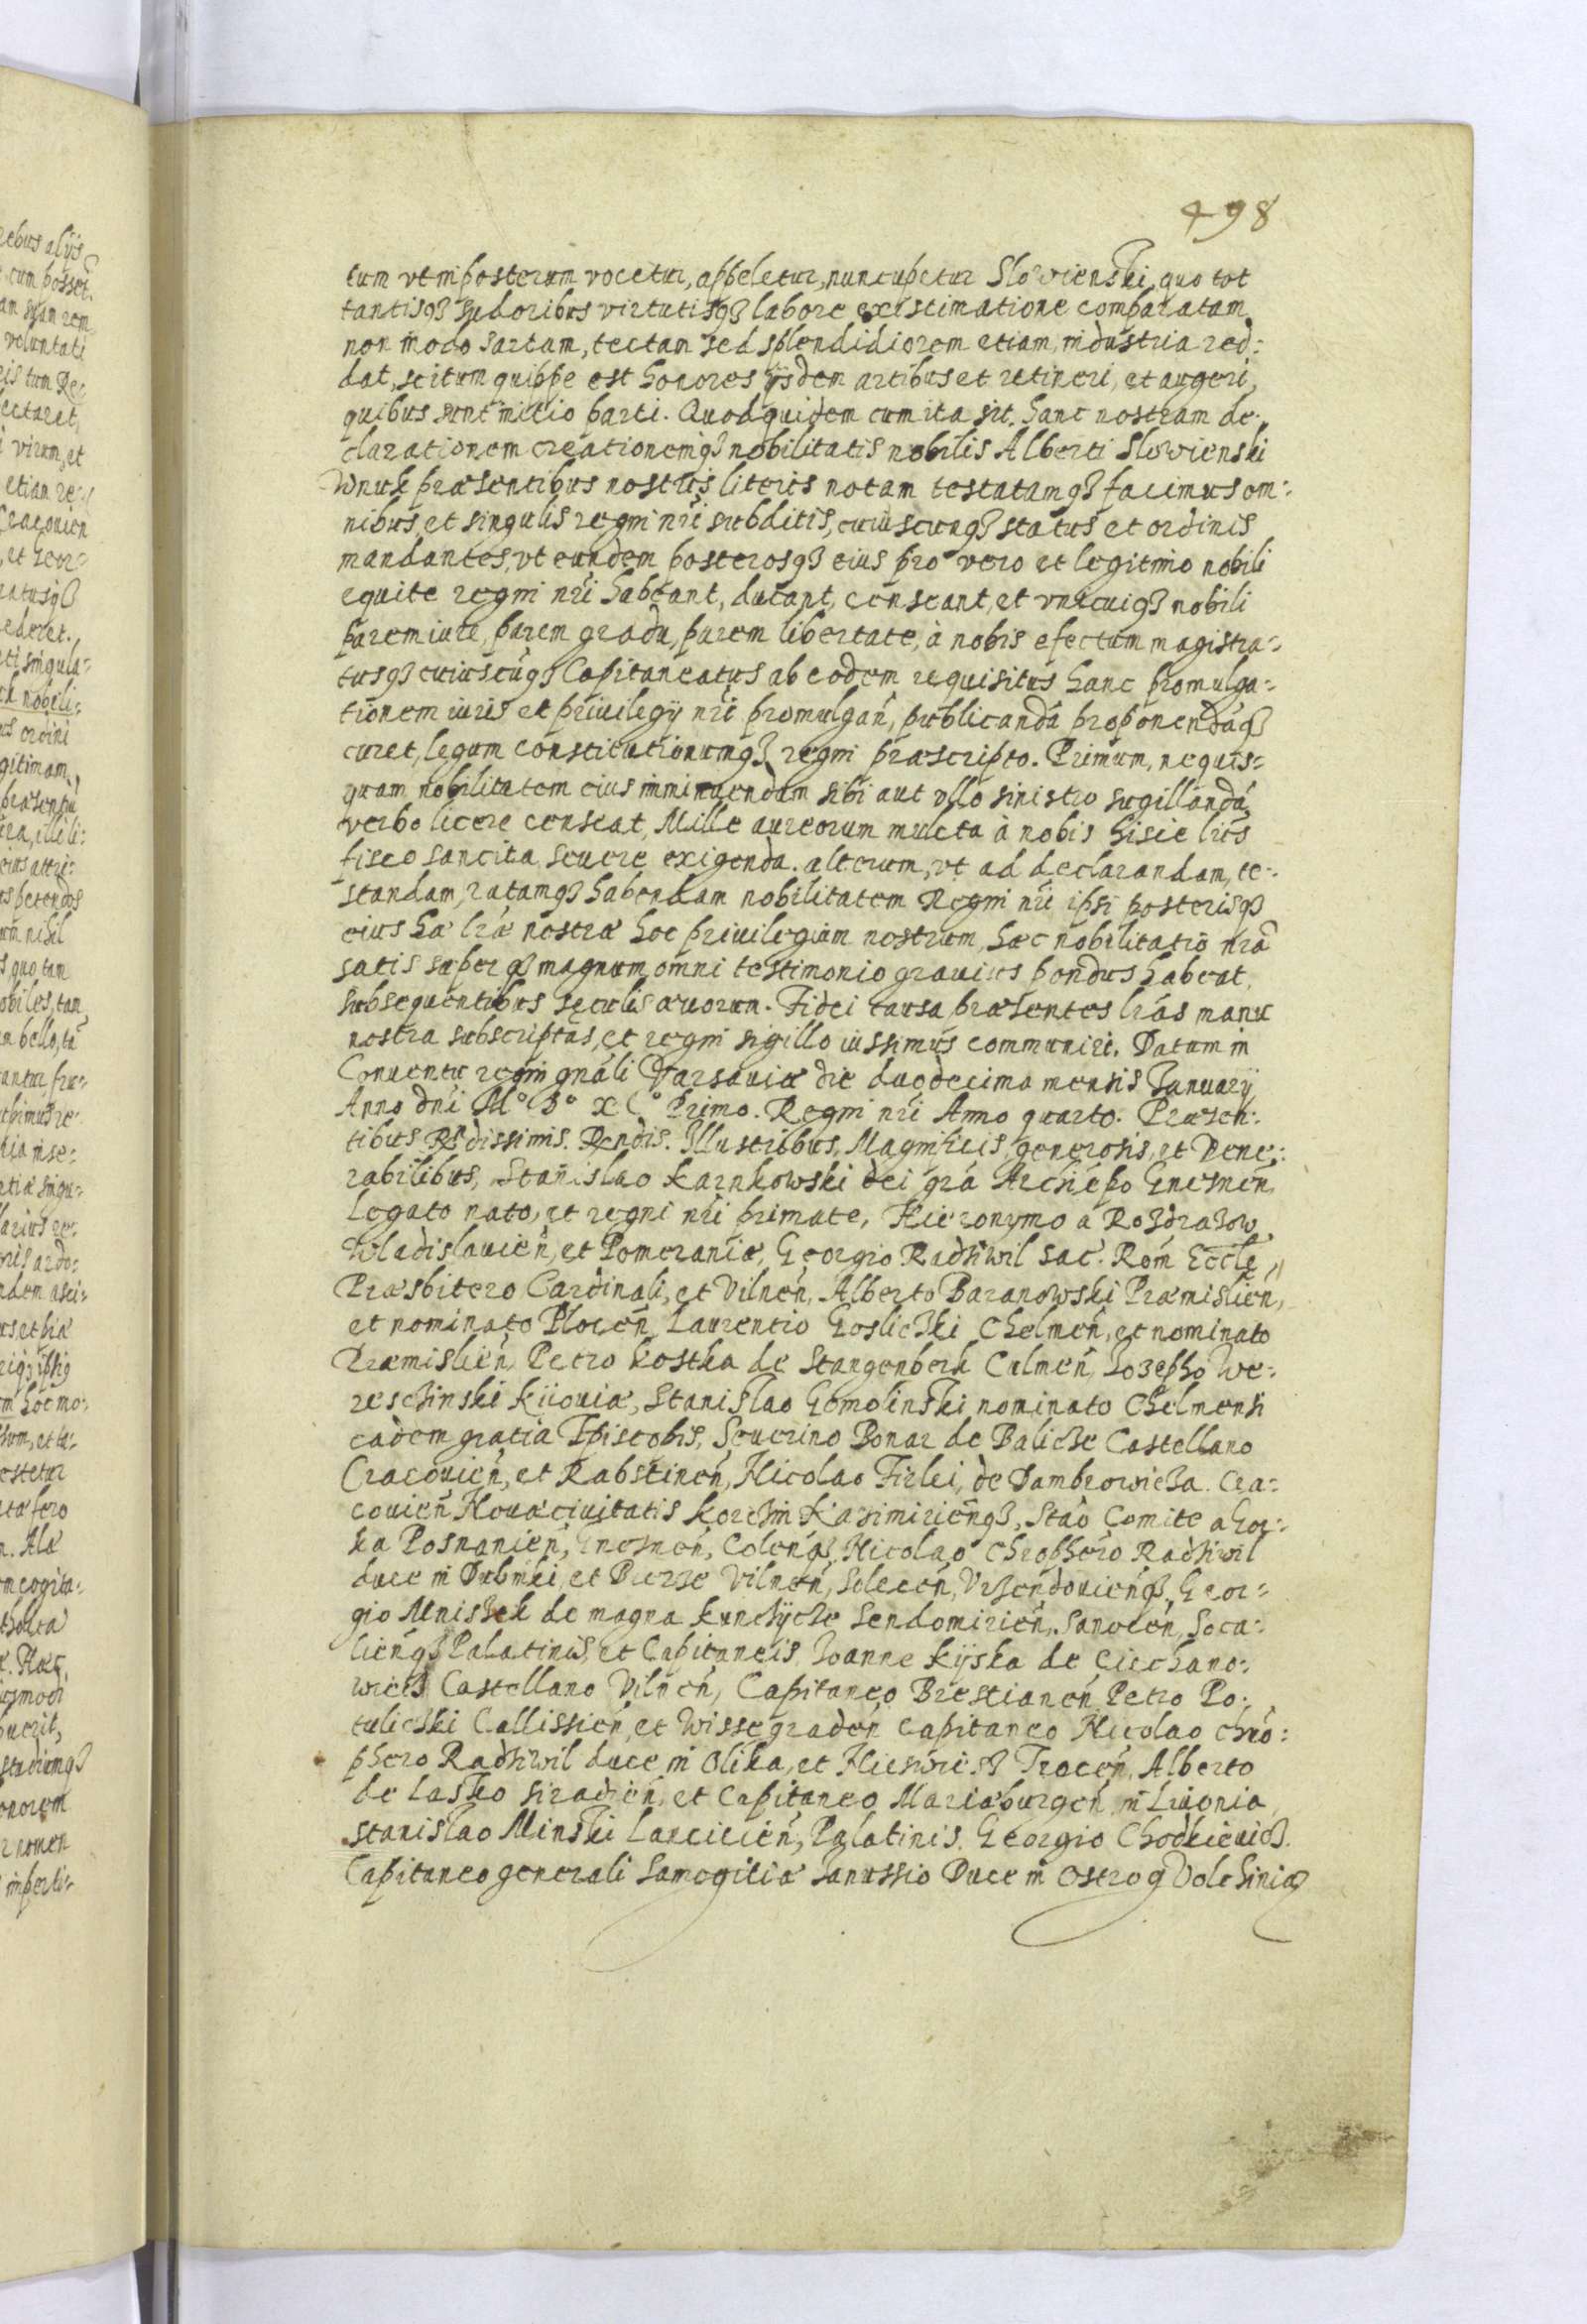 498
eum vt in posterum vocetur, appeletur, nuncupetur Slowienski, quo tot
tantisq3 sudoribus virtutisq3 labore existimatione comparatam
non modo sartam, tectam sed splendidiorem etiam, industria red:
dat, scitum quippe est honores ijsdem artibus et retineri, et augeri,
quibus sunt initio parti. Quod quidem cum ita sit, hanc nostram de:
clarationem creationemq3 nobilitatis nobilis Alberti Slowienski
Wnuk præsentibus nostris literis notam testatamq3 facimus om:
nibus, et singulis regni nri subditis, cuiuscunq3 status et ordinis
mandantes, vt eundem posterosq3 eius pro vero et legitimo nobili
equite regni nri habeant, ducant, censeant, et vnicuiq3 nobili
parem iure, parem gradu, parem libertate, à nobis efectum magistra:
tusq3 cuiuscúq3 Capitaneatus ab eodem requisitus hanc promulga:
tionem iuris et priuilegij nri promulgań, publicandá proponendáq3
curet, legum constitutionumq3 regni præscripto. Primum, ne quis:
quam nobilitatem eius imminuendam sibi aut vllo sinistro sugillandá
verbo licere censeat, Mille aureorum mulcta à nobis hisce lris
fisco sancita seuere exigenda. alterum, vt ad declarandam, te:
standam, ratamq3 habendam nobilitatem Regni nri ipsi posterisq3
eius hæ lræ nostræ hoc priuilegium nostrum, hæc nobilitatio nra
satis super q3 magnum, omni testimonio grauius pondus habeat,
subsequentibus seculis æuorum. Fidei causa præsentes lras manu
nostra subscriptas, et regni sigillo iussimus communiri. Datum in
Conuentu regni gnáli Varsauiæ die duodecima mensis Ianuarij
Anno dni M° D° XC° Primo. Regni nri Anno quarto. Præsen:
tibus Rndissimis. Rendis. Illustribus, Magnificis, generosis, et Vene:
rabilibus, Stanislao Karnkowski dei gra Archiepo Gnesnen
Legato nato, et regni nri primate, Hieronymo a Rozdrazow
Wladislauień, et Pomeraniæ, Georgio Radziwil sac. Rom Eccle
Præsbitero Cardinali, et Vilneń, Alberto Baranowski Præmislień,
et nominato Ploceń, Laurentio Goslicki Chelmeń, et nominato
Præmislień, Petro Kostka de Stangenberk Culmeń, Iosepho We:
reschinski Kijouiæ, Stanislao Gomolinski nominato Chelmensi
eadem gratia Episcopis, Seuerino Bonar de Balicze Castellano
Cracouień, et Rabstineń, Nicolao Firlei, de Dambrowicza. Cra:
couień Nouæciuitatis Korczin Kazimirieńq3, Stao Comite a Gor:
ka Posnanień, Gnesneń, Coleńq3, Nicolao Chrophero Radziwil
duce in Dubinki, et Bierze Vilneń, Soleceń, Vrzendouieńq3, Geor:
gio Mniszek de magna Kunczycze Sendomirień, Sanoceń, Soca:
lieńq3 Palatinis, et Capitaneis, Ioanne Kijska de Ciechano:
wiecz Castellano Vilneń, Capitaneo Brestianeń Petro Po:
tulicki Callissień, et Wissegradeń Capitaneo Nicolao Chro:
phero Radziwil duce in Olika, et Nieswisz Troceń, Alberto
de Lasko siradień, et Capitaneo Mariæburgeń, in Liuonia,
Stanislao Minski Lancicień, Palatinis. Georgio Chodkieuicz.
Capitaneo generali Samogitiæ Ianussio Duce in Ostrog Volchiniæ